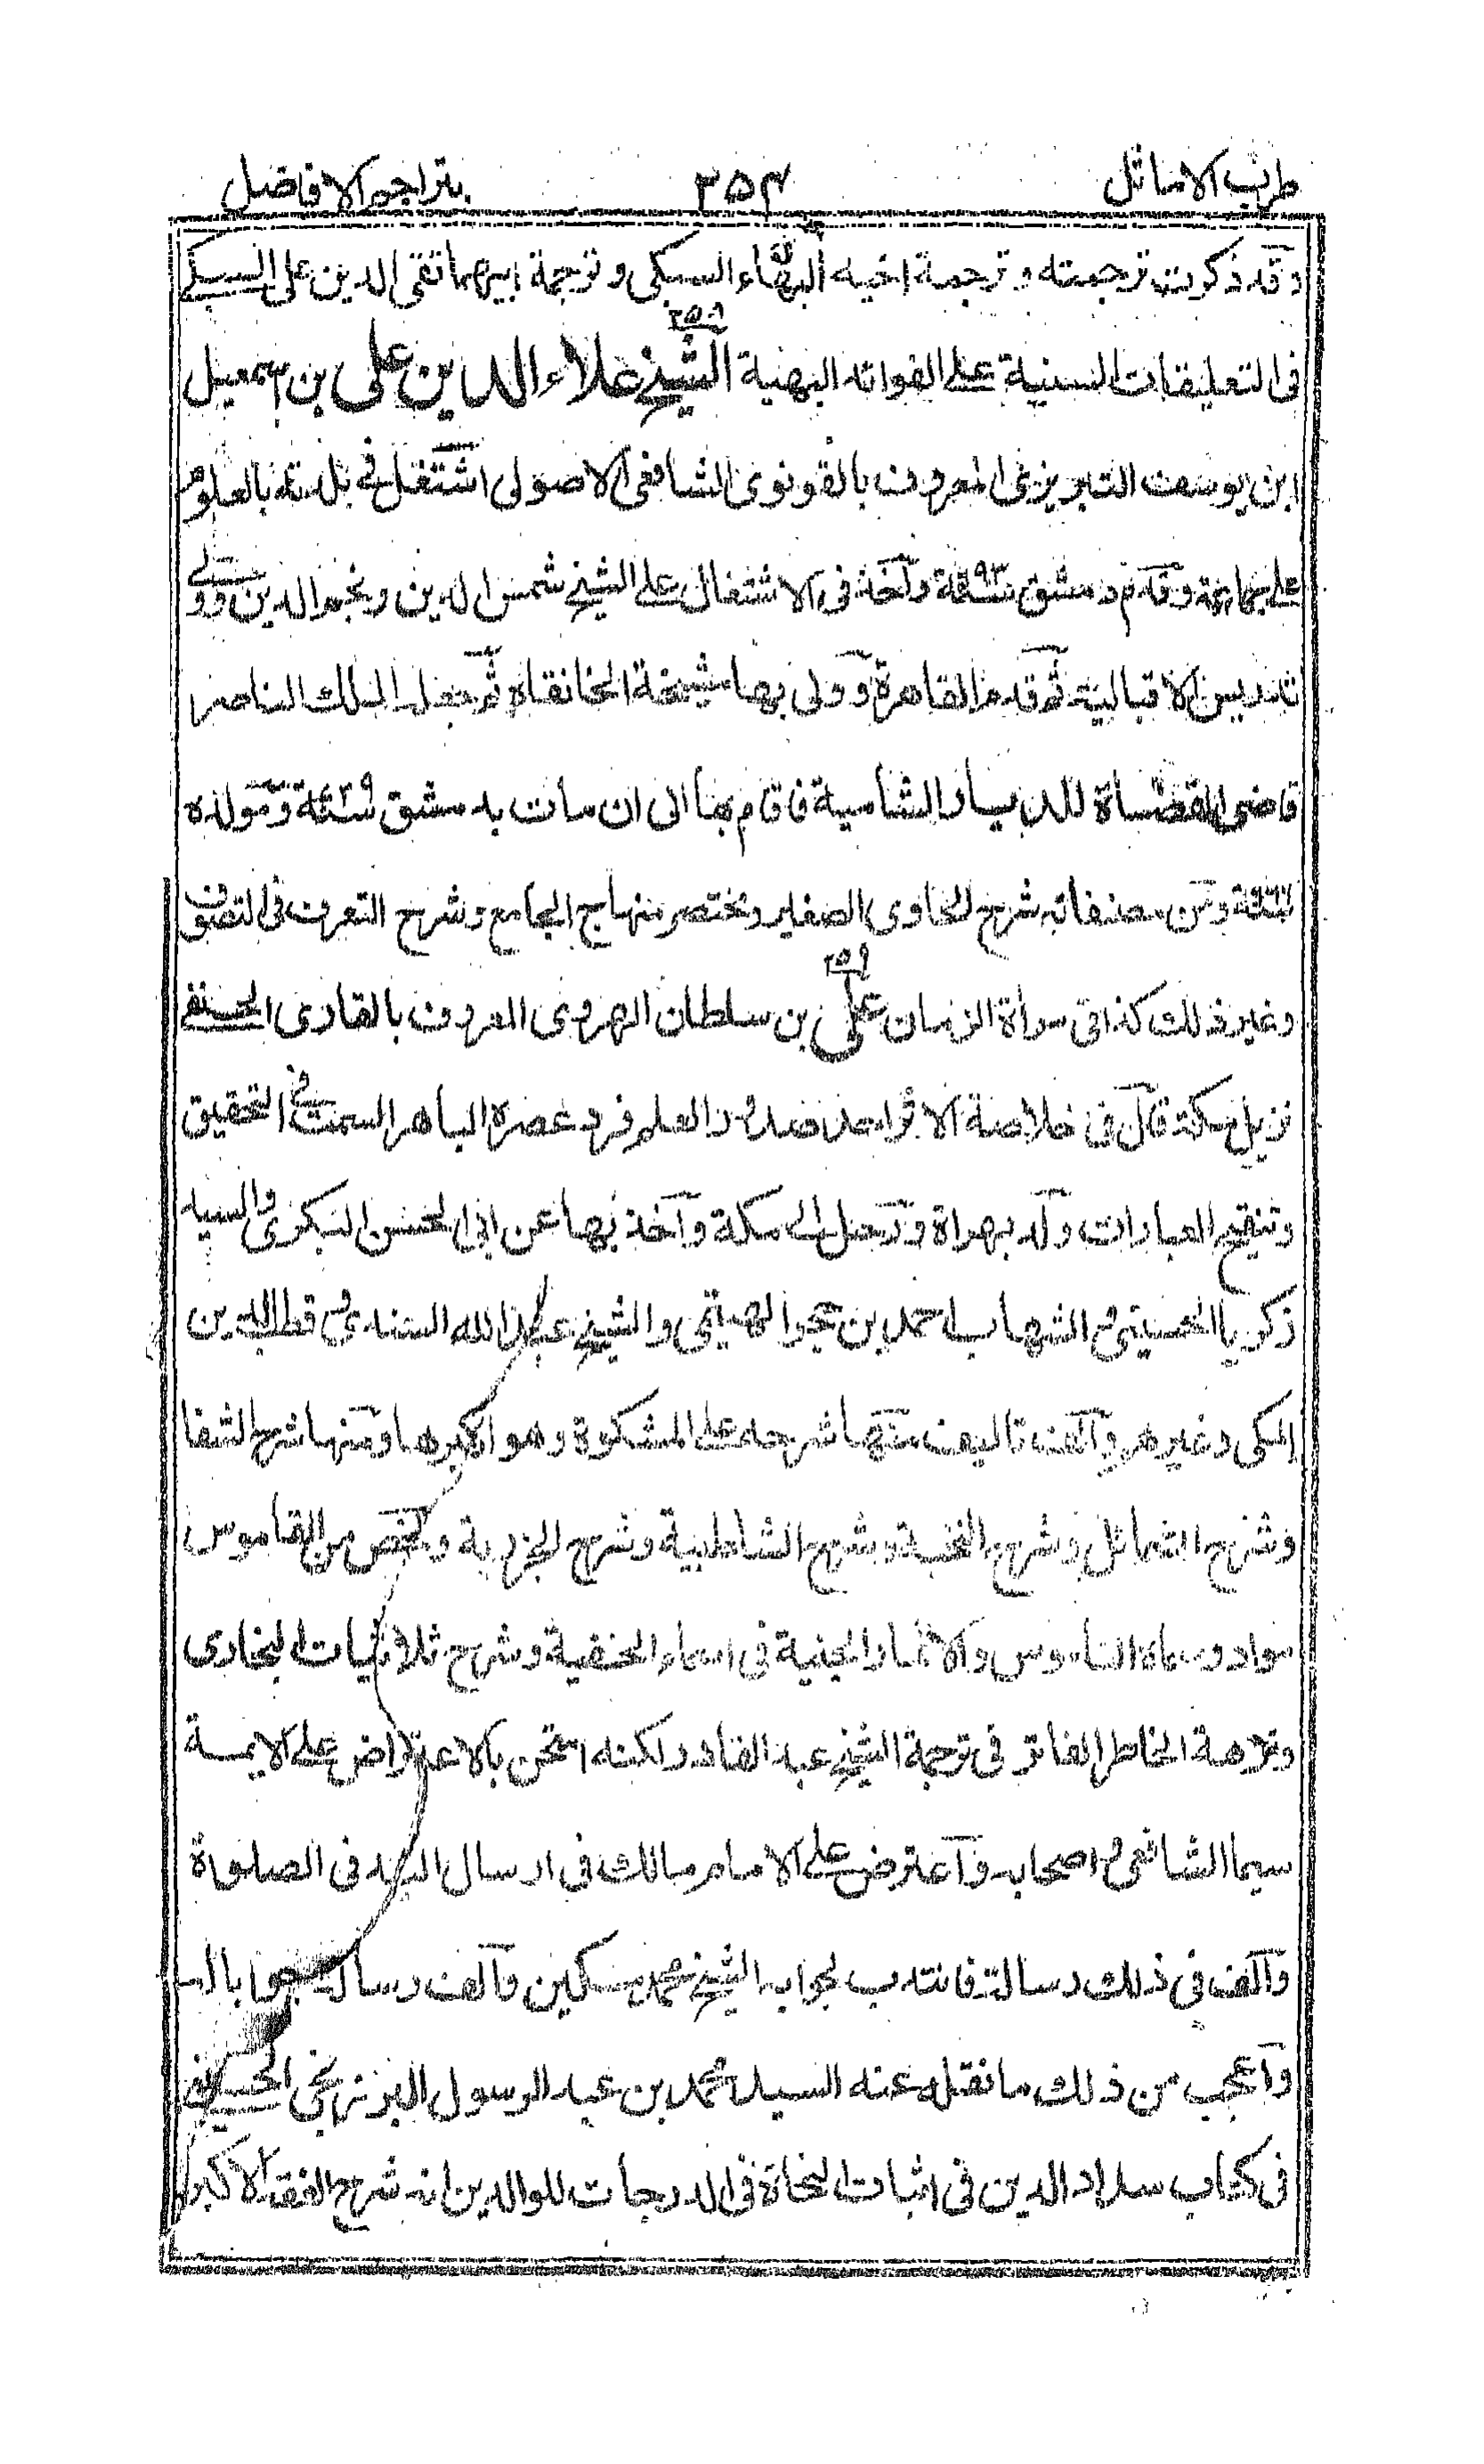 طرب الاماثل ٢٥٤ بتراجم الافاضل
وقد ذكرت ترجمته و ترجمة اخيه البهاء السبكى و ترجمة ابيهما تقى الدين على السبكى
٢٥٨
فى التعليقات السنية على الفوائد البهية الشيخ علاء الدين على بن اسمعيل
ابن يوسف التبريزى المعروف بالقونوى الشافعى الاصولى اشتغل فى بلدته بالعلوم
على جماعة وقدم دمشق ٦٩٣سنة وآخذ فى الاشتغال على الشيخ شمس الدين ونجم الدين وولى
تدريس الاقبالية ثم قدم القاهرة وولى بها مشيخة الخانقاه ثم جعله الملك الناصر
قاضى القضاة للديار الشامية فاقام بها الى ان مات بدمشق ٧٢٩سنة ومولده
سنة ومن مصنفاته شرح الحاوى الصغير ومختصر منهاج الجامع وشرح التعرف فى التصوف
٢٥٩
وغير ذلك كذا فى مرأة الزمان على بن سلطان الهروى المعروف بالقارى الحنفى
نزيل مكة قال فى خلاصة الاثر احد صدور العلم فرد عصره الباهر السمت فى التحقيق
وتنقيح العبارات ولد بهراة ورحل الى مكة وآخذ بها عن ابى الحسن البكرى والسيد
زكريا الحسينى و الشهاب احمد بن حجر الهيتمى والشيخ عبد الله السندى و قطب الدين
المكى وغيرهم وآلف تاليف منها شرحه على المشكوة وهو اكبرها ومنها شرح الشفا
وشرح الشمائل وشرح النخبة وشرح الشاطبية وشرح الجزرية ولخص من القاموس
مواد وسماه الناموس والاثمار الجنية فى اسماء الحنفية وشرح ثلاثيات البخارى
ونزهة الخاطر الفاتر فى ترجمة الشيخ عبد القادر ولكنه امتحن بالاعتراض على الايمة
سيما الشافعى و اصحابه وآعترض على الامام مالك فى ارسال اليد فى الصلوة
وآلف فى ذلك رسالة فانتدب لجوابه الشيخ محمد مسكين وآلف رسالة جوابا له
وآعجب من ذلك ما نقله عنه السيد محمد بن عبد الرسول البرزنجى الحسينى
فى كتاب سداد الدين فى اثبات النجاة فى الدرجات للوالدين انه شرح الفقه الاكبر